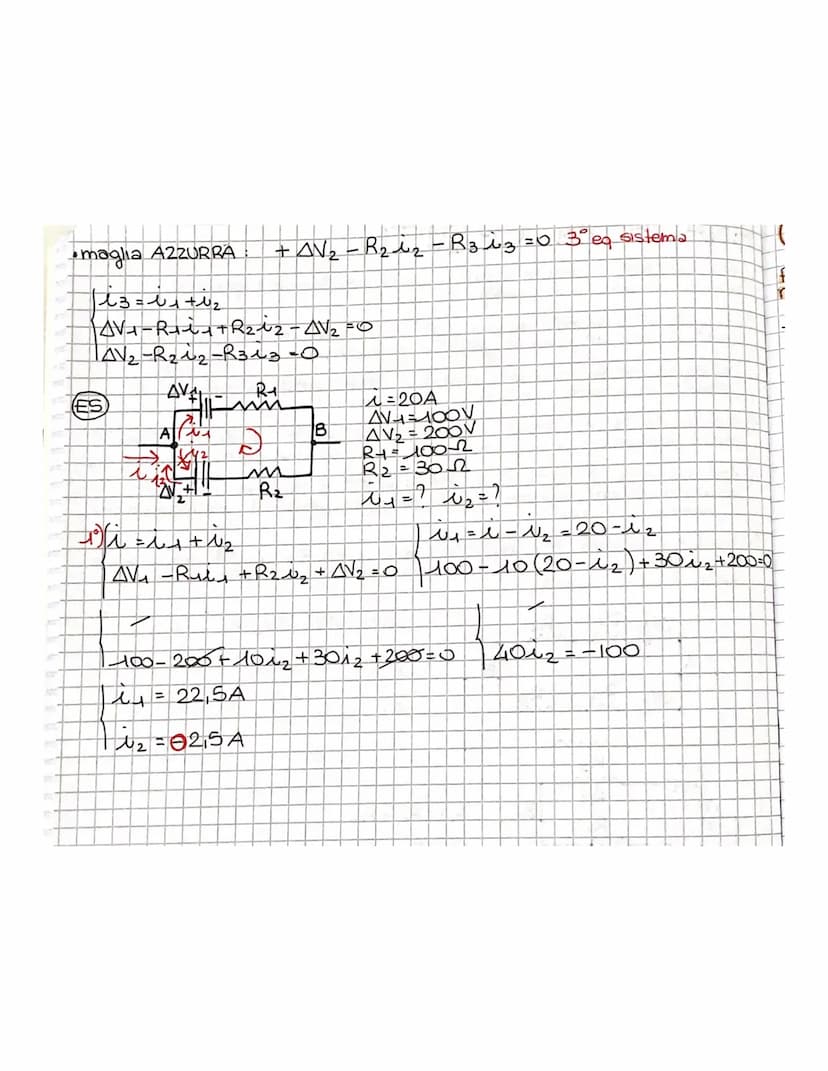 • maglia AZZURRA : + ΔV₂ - R₂i₂ - R₃i₃ = 0 3° eq sistema
i₃ = i₁ + i₂
ΔV₁ - R₁i₁ + R₂i₂ - ΔV₂ = 0
ΔV₂ - R₂i₂ - R₃i₃ = 0
ES
ΔV₁ + - R₁
A i₁ B
i i₂ i₂
ΔV₂ + - R₂
i = 20A
ΔV₁ = 100V
ΔV₂ = 200V
R₁ = 100 Ω
R₂ = 30 Ω
i₁ = ? i₂ = ?
1°) i = i₁ + i₂
ΔV₁ - R₁i₁ + R₂i₂ + ΔV₂ = 0
i₁ = i - i₂ = 20 - i₂
100 - 10(20 - i₂) + 30i₂ + 200 = 0
100 - 200 + 10i₂ + 30i₂ + 200 = 0
40i₂ = -100
i₁ = 22,5A
i₂ = -2,5A